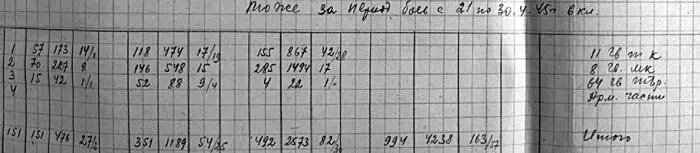 тоже за период боев с 21 по 30.4.45г вкл.
1 57 173 14/1 118 474 17/19 155 867 42/28 11 гв т к
2 70 227 8 146 548 15 285 1494 17 8 гв. мк
3 15 42 1/1 52 88 9/4 4 22 1/- 64 гв тбр.
4 Арм. части
151 151 476 27/2 351 1189 54/25 492 2573 82/30 994 4238 163/57 Итого